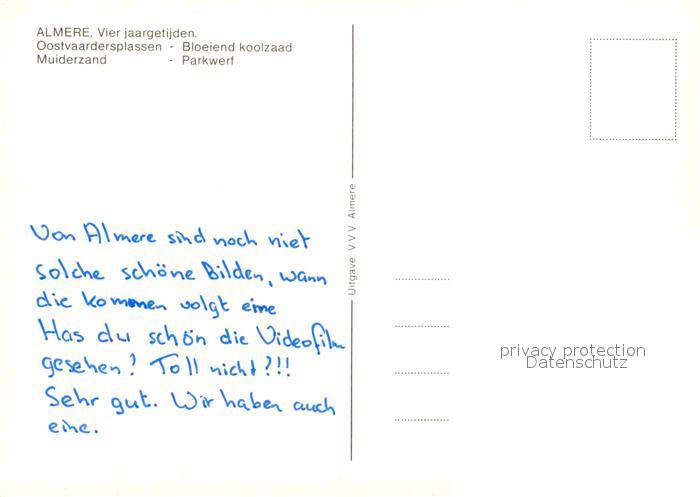 ALMERE, Vier jaargetijden.
Oostvaardersplassen - Bloeiend koolzaad
Muiderzand - Parkwerf
Von Almere sind noch niet
solche schöne Bilden, wann
die kommen volgt eine
Has du schön die Videofilm
gesehen? Toll nicht?!!!
Sehr gut. Wir haben auch
eine.
Uitgave: V.V.V. Almere
privacy protection
Datenschutz